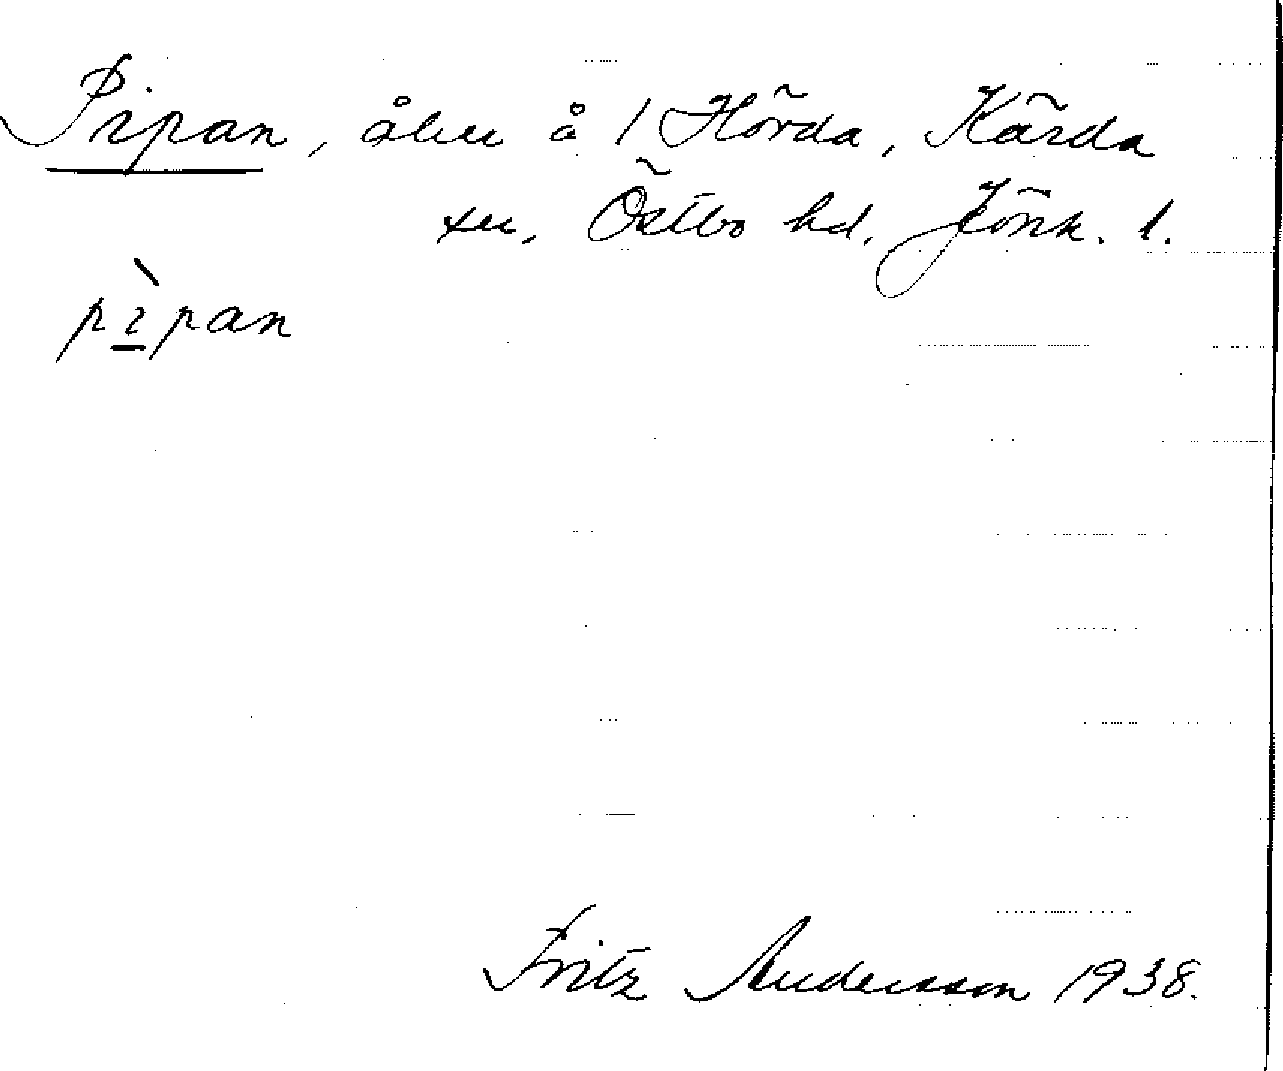 Pipan, åker å 1 Hörda, Kärda
sn, Östbo hd, Jönk. l.
pìpan
Fritz Andersson 1938.